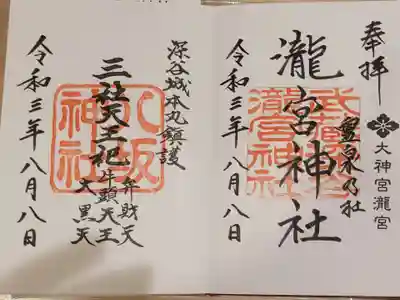 奉拝
大神宮瀧宮
泉乃社
瀧宮神社
瀧宮神社
令和三年八月八日
深谷城本丸鎮護
三社天王祀
弁財天
牛頭天王
大黒天
八坂
神社
令和三年八月八日